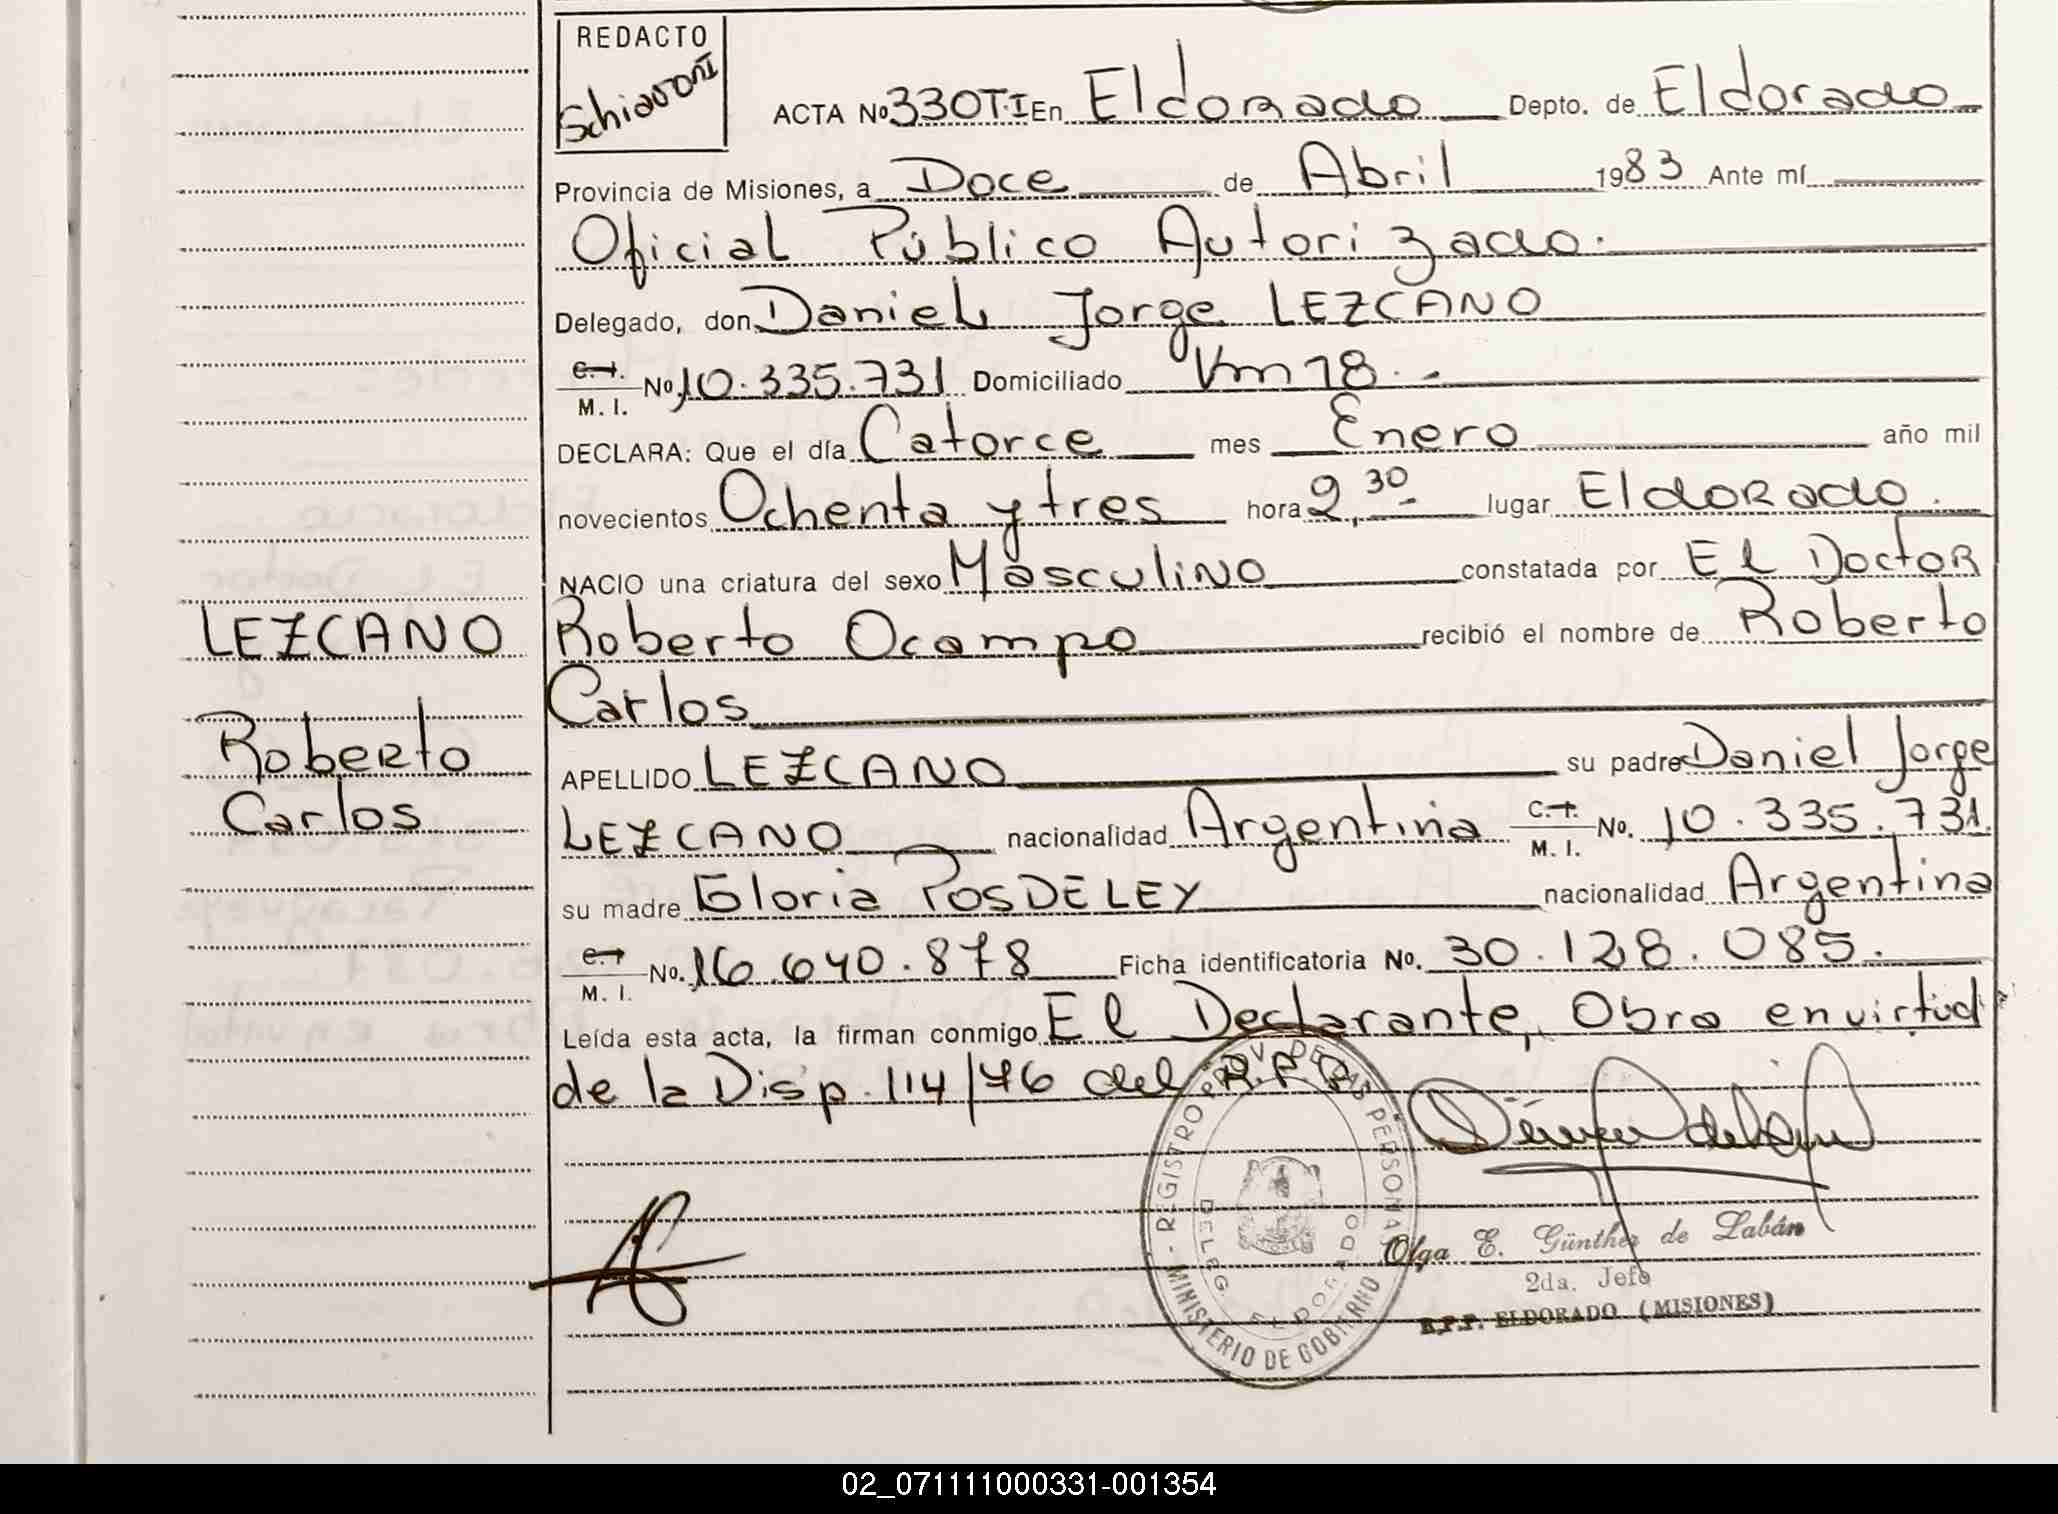 REDACTO
Schiavoni
ACTA No 330 T·I En Eldorado Depto. de Eldorado
Provincia de Misiones, a Doce de Abril 1983 Ante mí
Oficial Público Autorizado.
Delegado, don Daniel Jorge LEZCANO
C. I. M. I. No 10.335.731 Domiciliado Km 18.-
DECLARA: Que el día Catorce mes Enero año mil
novecientos Ochenta y tres hora 2,30- lugar Eldorado.
NACIO una criatura del sexo Masculino constatada por El Doctor
Roberto Ocampo recibió el nombre de Roberto
Carlos
APELLIDO LEZCANO su padre Daniel Jorge
LEZCANO nacionalidad Argentina C. I. M. I. No. 10.335.731.
su madre Gloria POSDELEY nacionalidad Argentina
C. I. M. I. No. 16.640.878 Ficha identificatoria No. 30.128.085.
Leída esta acta, la firman conmigo El Declarante, Obra en virtud
de la Disp. 114/76 del R.P.P
LEZCANO
Roberto
Carlos
REGISTRO PROV. DE LAS PERSONAS
DELEG. ELDORADO
MINISTERIO DE GOBIERNO
Olga E. Günther de Labán
2da. Jefe
R.P.P. ELDORADO (MISIONES)
02_071111000331-001354